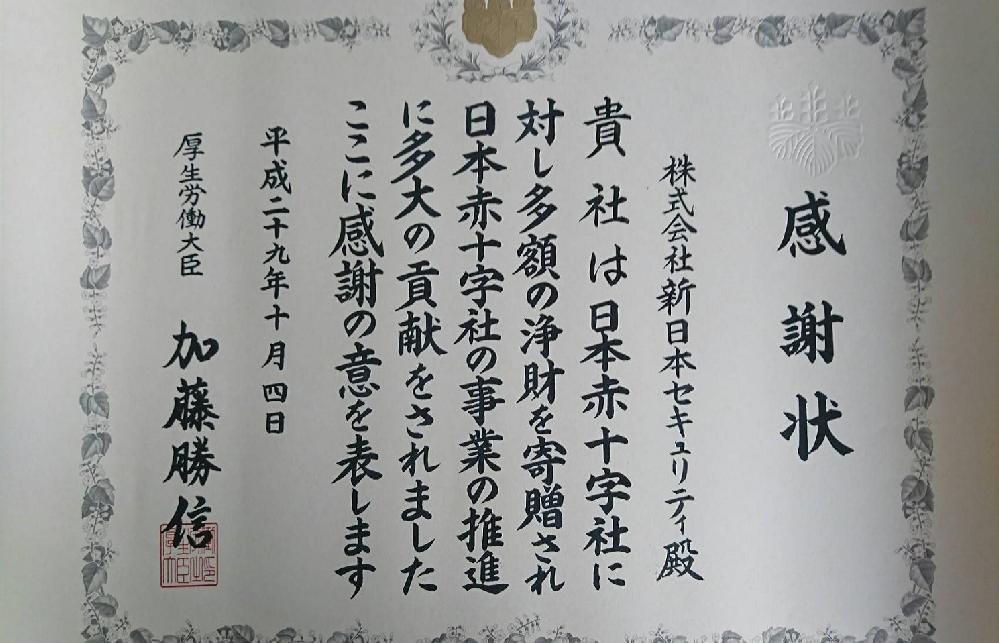 感謝状
株式会社新日本セキュリティ殿
貴社は日本赤十字社に
対し多額の浄財を寄贈され
日本赤十字社の事業の推進
に多大の貢献をされました
ここに感謝の意を表します
平成二十九年十月四日
厚生労働大臣 加藤勝信